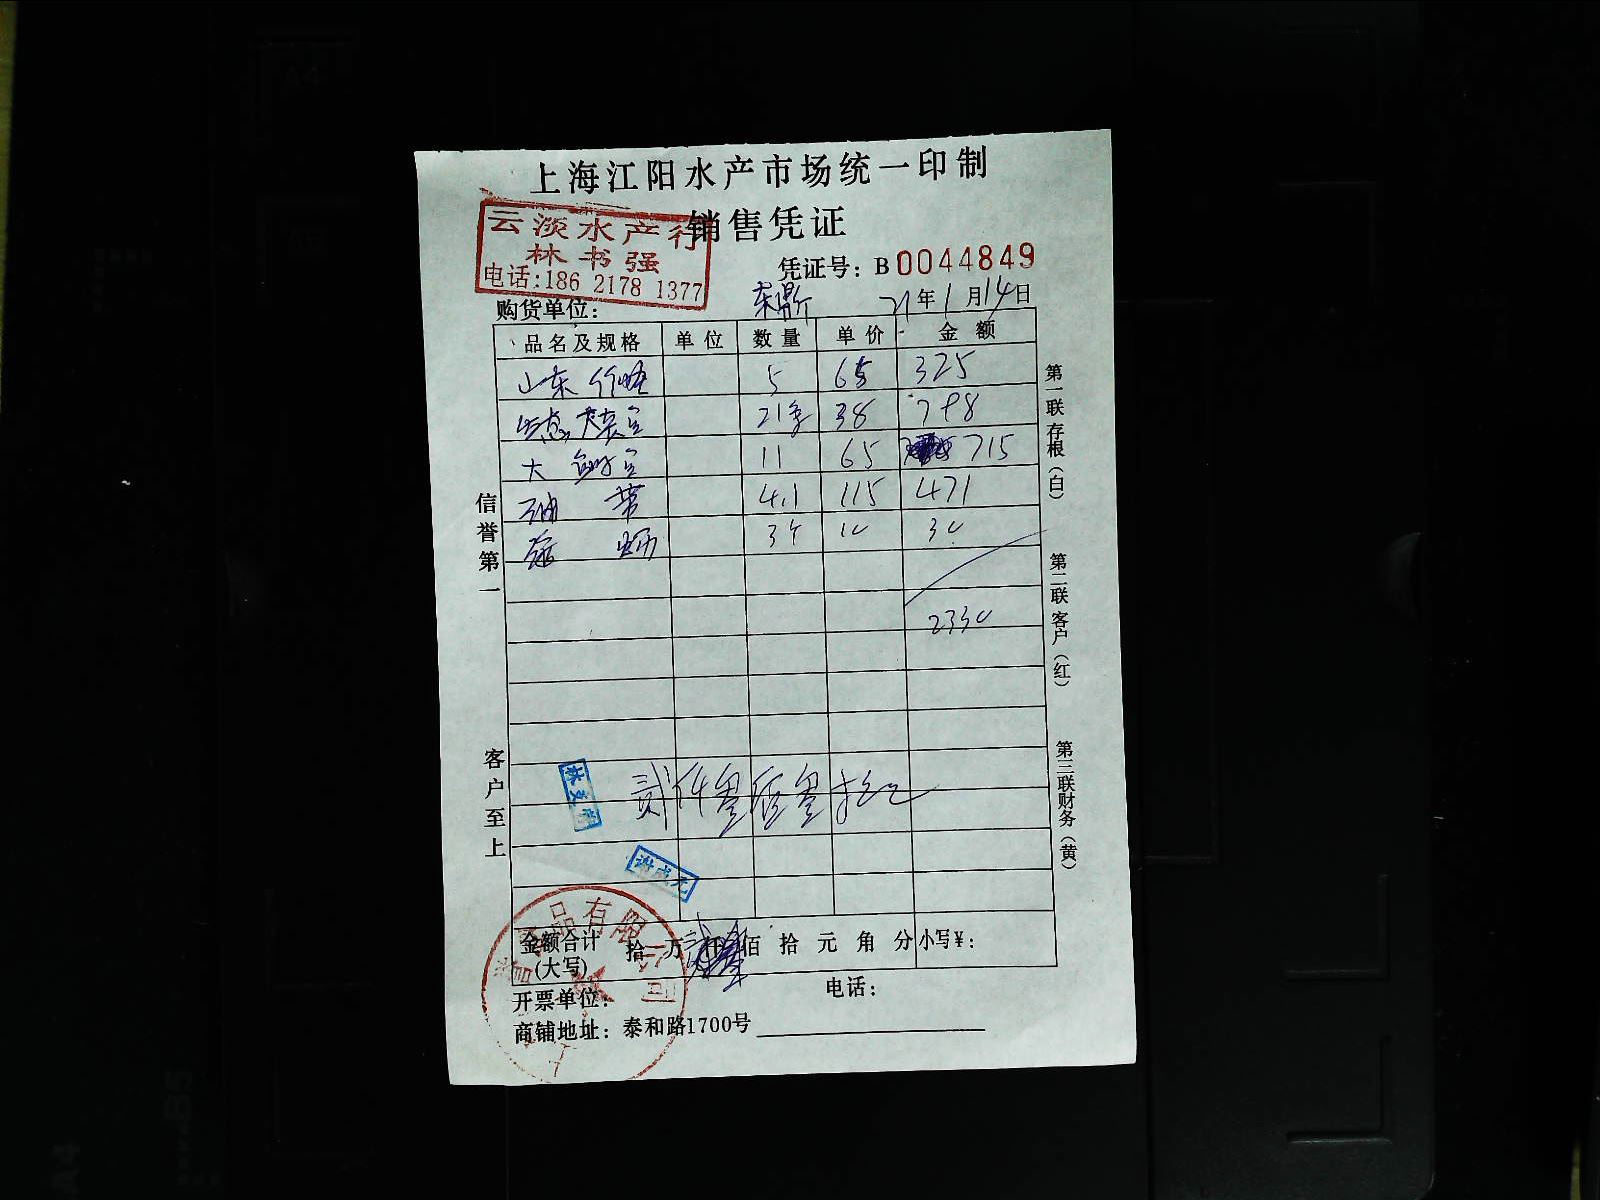 上海江阳水产市场统一印制
销售凭证
云淡水产行
林书强
电话:186 2178 1377
凭证号: B0044849
购货单位: 东鼎 21年1月14日
品名及规格 单位 数量 单价 金额
山东 5 65 325
21 38 798
大 11 65 715
油带 4.1 115 471
34 10 30
2330
贰仟 拾元
金额合计(大写) 拾 万 仟 佰 拾 元 角 分 小写¥:
开票单位: 电话:
商铺地址: 泰和路1700号
信誉第一
客户至上
第一联存根(白)
第二联客户(红)
第三联财务(黄)
品有限公司